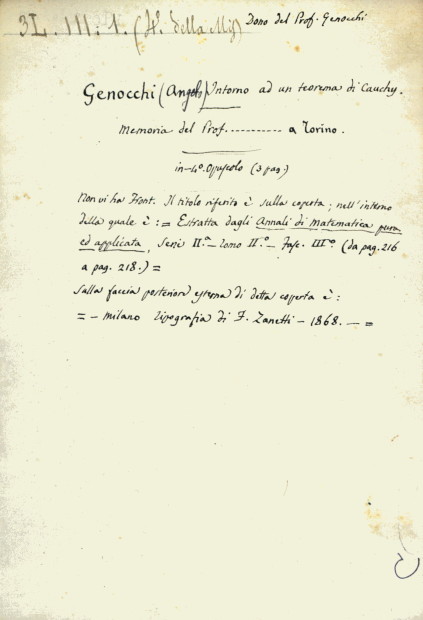 3L. III. 1. (4º della My) Dono del Prof. Genocchi
Genocchi (Angelo) Intorno ad un teorema di Cauchy.
Memoria del Prof. ----------- a Torino.
in-4º. Opuscolo (3 pag.)
Non vi ha Front. Il titolo riferito è sulla coperta; nell'interno
della quale è : = Estratta dagli Annali di Matematica pura
ed applicata, Serie IIª - Tomo IIº - Fasc. IIIº (da pag. 216
a pag. 218.) =
Sulla faccia posteriore esterna di detta coperta è :
= - Milano Tipografia di F. Zanetti - 1868. - =